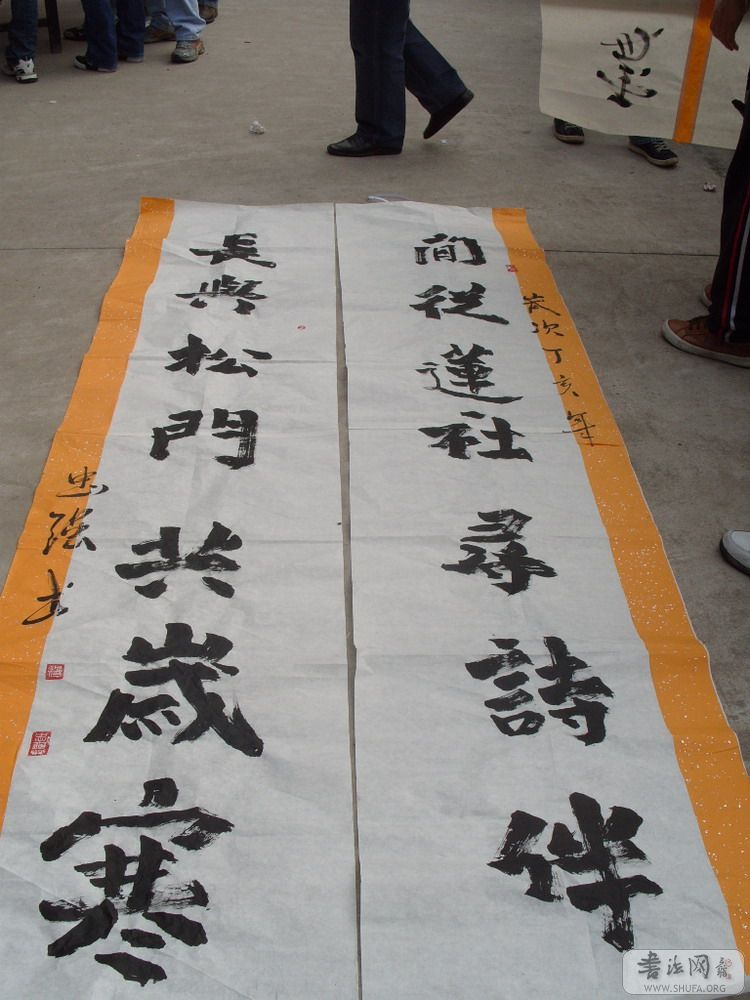 歲次丁亥年
閒從蓮社尋詩伴
長與松門共歲寒
忠强书
書法网
WWW.SHUFA.ORG